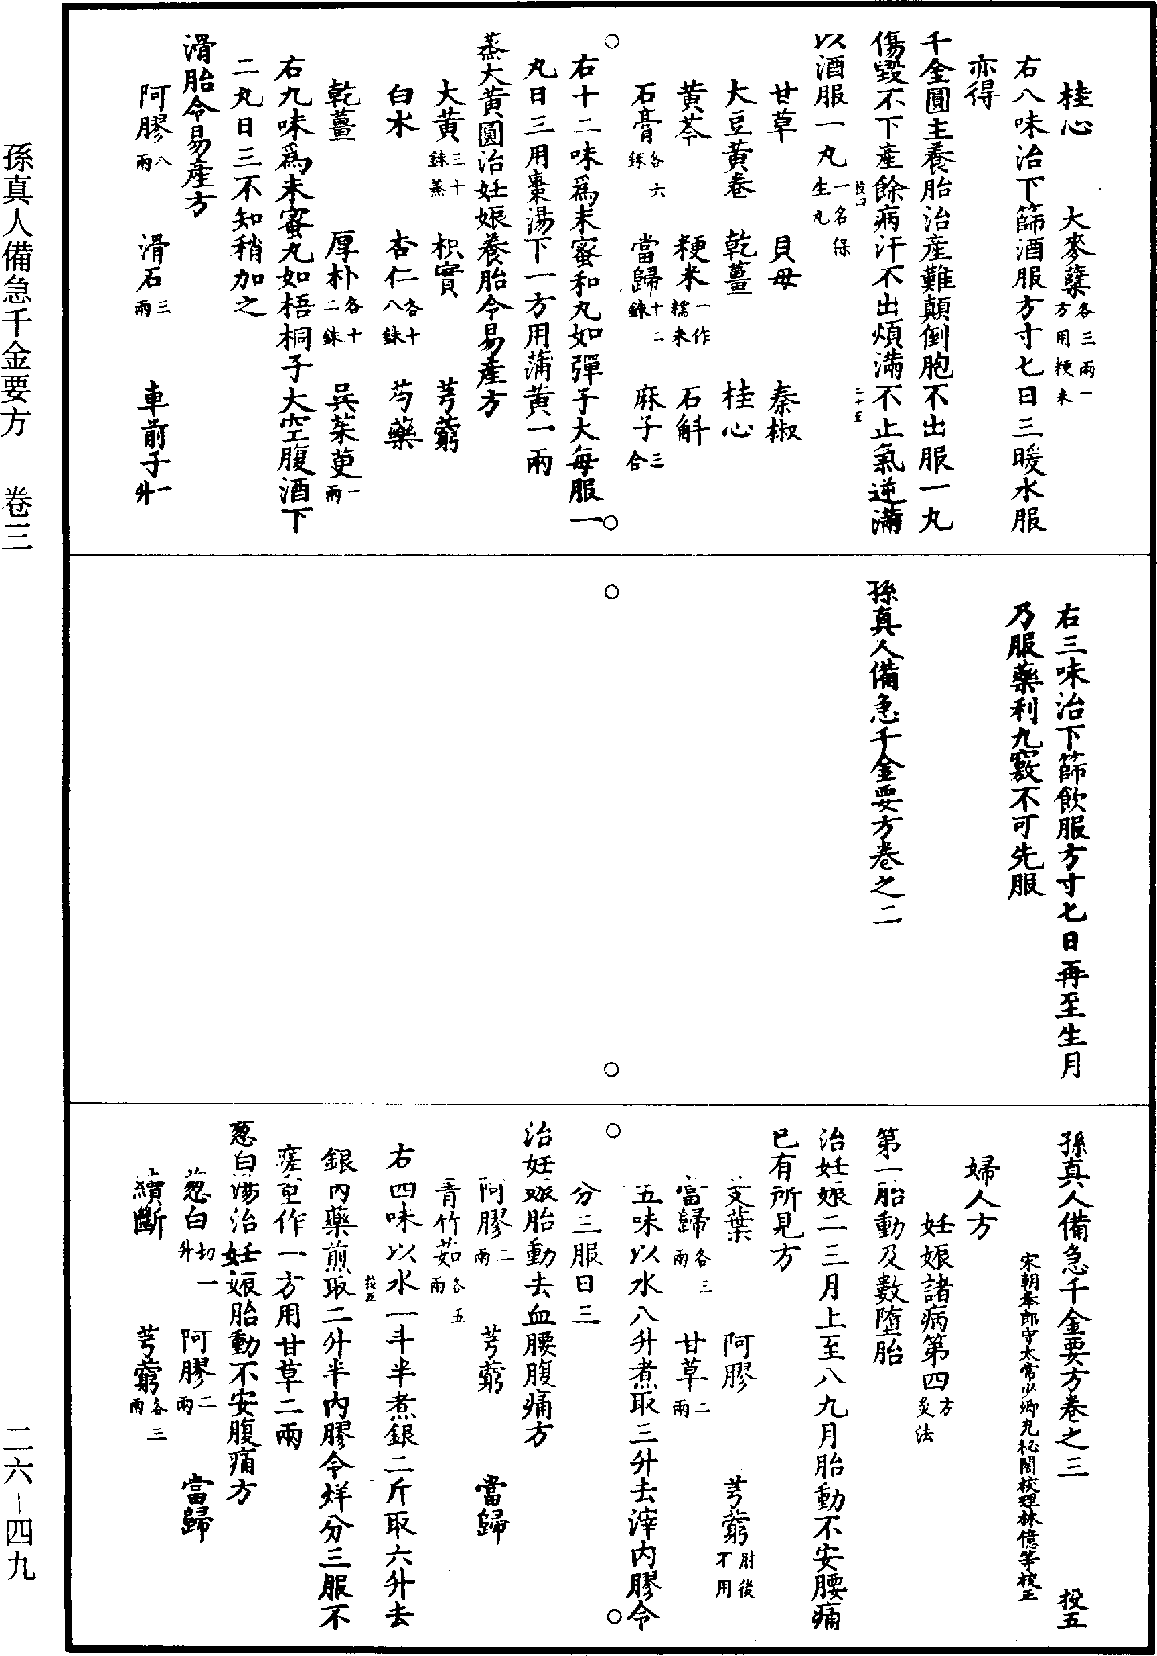 桂心　大麥蘖各三兩一方用粳米
右八味治下篩酒服方寸匕日三暖水服
亦得
千金圓主養胎治產難顛倒胞不出服一丸
傷毀不下產餘病汗不出煩滿不止氣逆滿
以酒服一丸一名保生丸
甘草　貝母　秦椒
大豆黃卷　乾薑　桂心
黃芩　粳米一作糯米　石斛
石膏各六銖　當歸十二銖　麻子三合
右十二味爲末蜜和丸如彈子大每服一
丸日三用棗湯下一方用蒲黃一兩
蒸大黃圓治妊娠養胎令易產方
大黃三十銖蒸　枳實　芎藭
白朮　杏仁各十八銖　芍藥
乾薑　厚朴各十二銖　吳茱萸一兩
右九味爲末蜜丸如梧桐子大空腹酒下
二丸日三不知稍加之
滑胎令易產方
阿膠八兩　滑石三兩　車前子一升
右三味治下篩飲服方寸匕日再至生月
乃服藥利九竅不可先服
孫真人備急千金要方卷之二
孫真人備急千金要方卷之三　投五
宋朝奉郎守太常少卿充秘閣校理林億等校正
婦人方
妊娠諸病第四方灸法
第一胎動及數墮胎
治妊娠二三月上至八九月胎動不安腰痛
已有所見方
艾葉　阿膠　芎藭肘後不用
當歸各三兩　甘草二兩
五味以水八升煮取三升去滓內膠令
分三服日三
治妊娠胎動去血腰腹痛方
阿膠二兩　芎藭　當歸
青竹茹各五兩
右四味以水一斗半煮銀二斤取六升去
銀內藥煎取二升半內膠令烊分三服不
瘥重作一方用甘草二兩
葱白湯治妊娠胎動不安腹痛方
葱白切一升　阿膠二兩　當歸
續斷　芎藭各三兩
孫真人備急千金要方　卷三
二六－四九